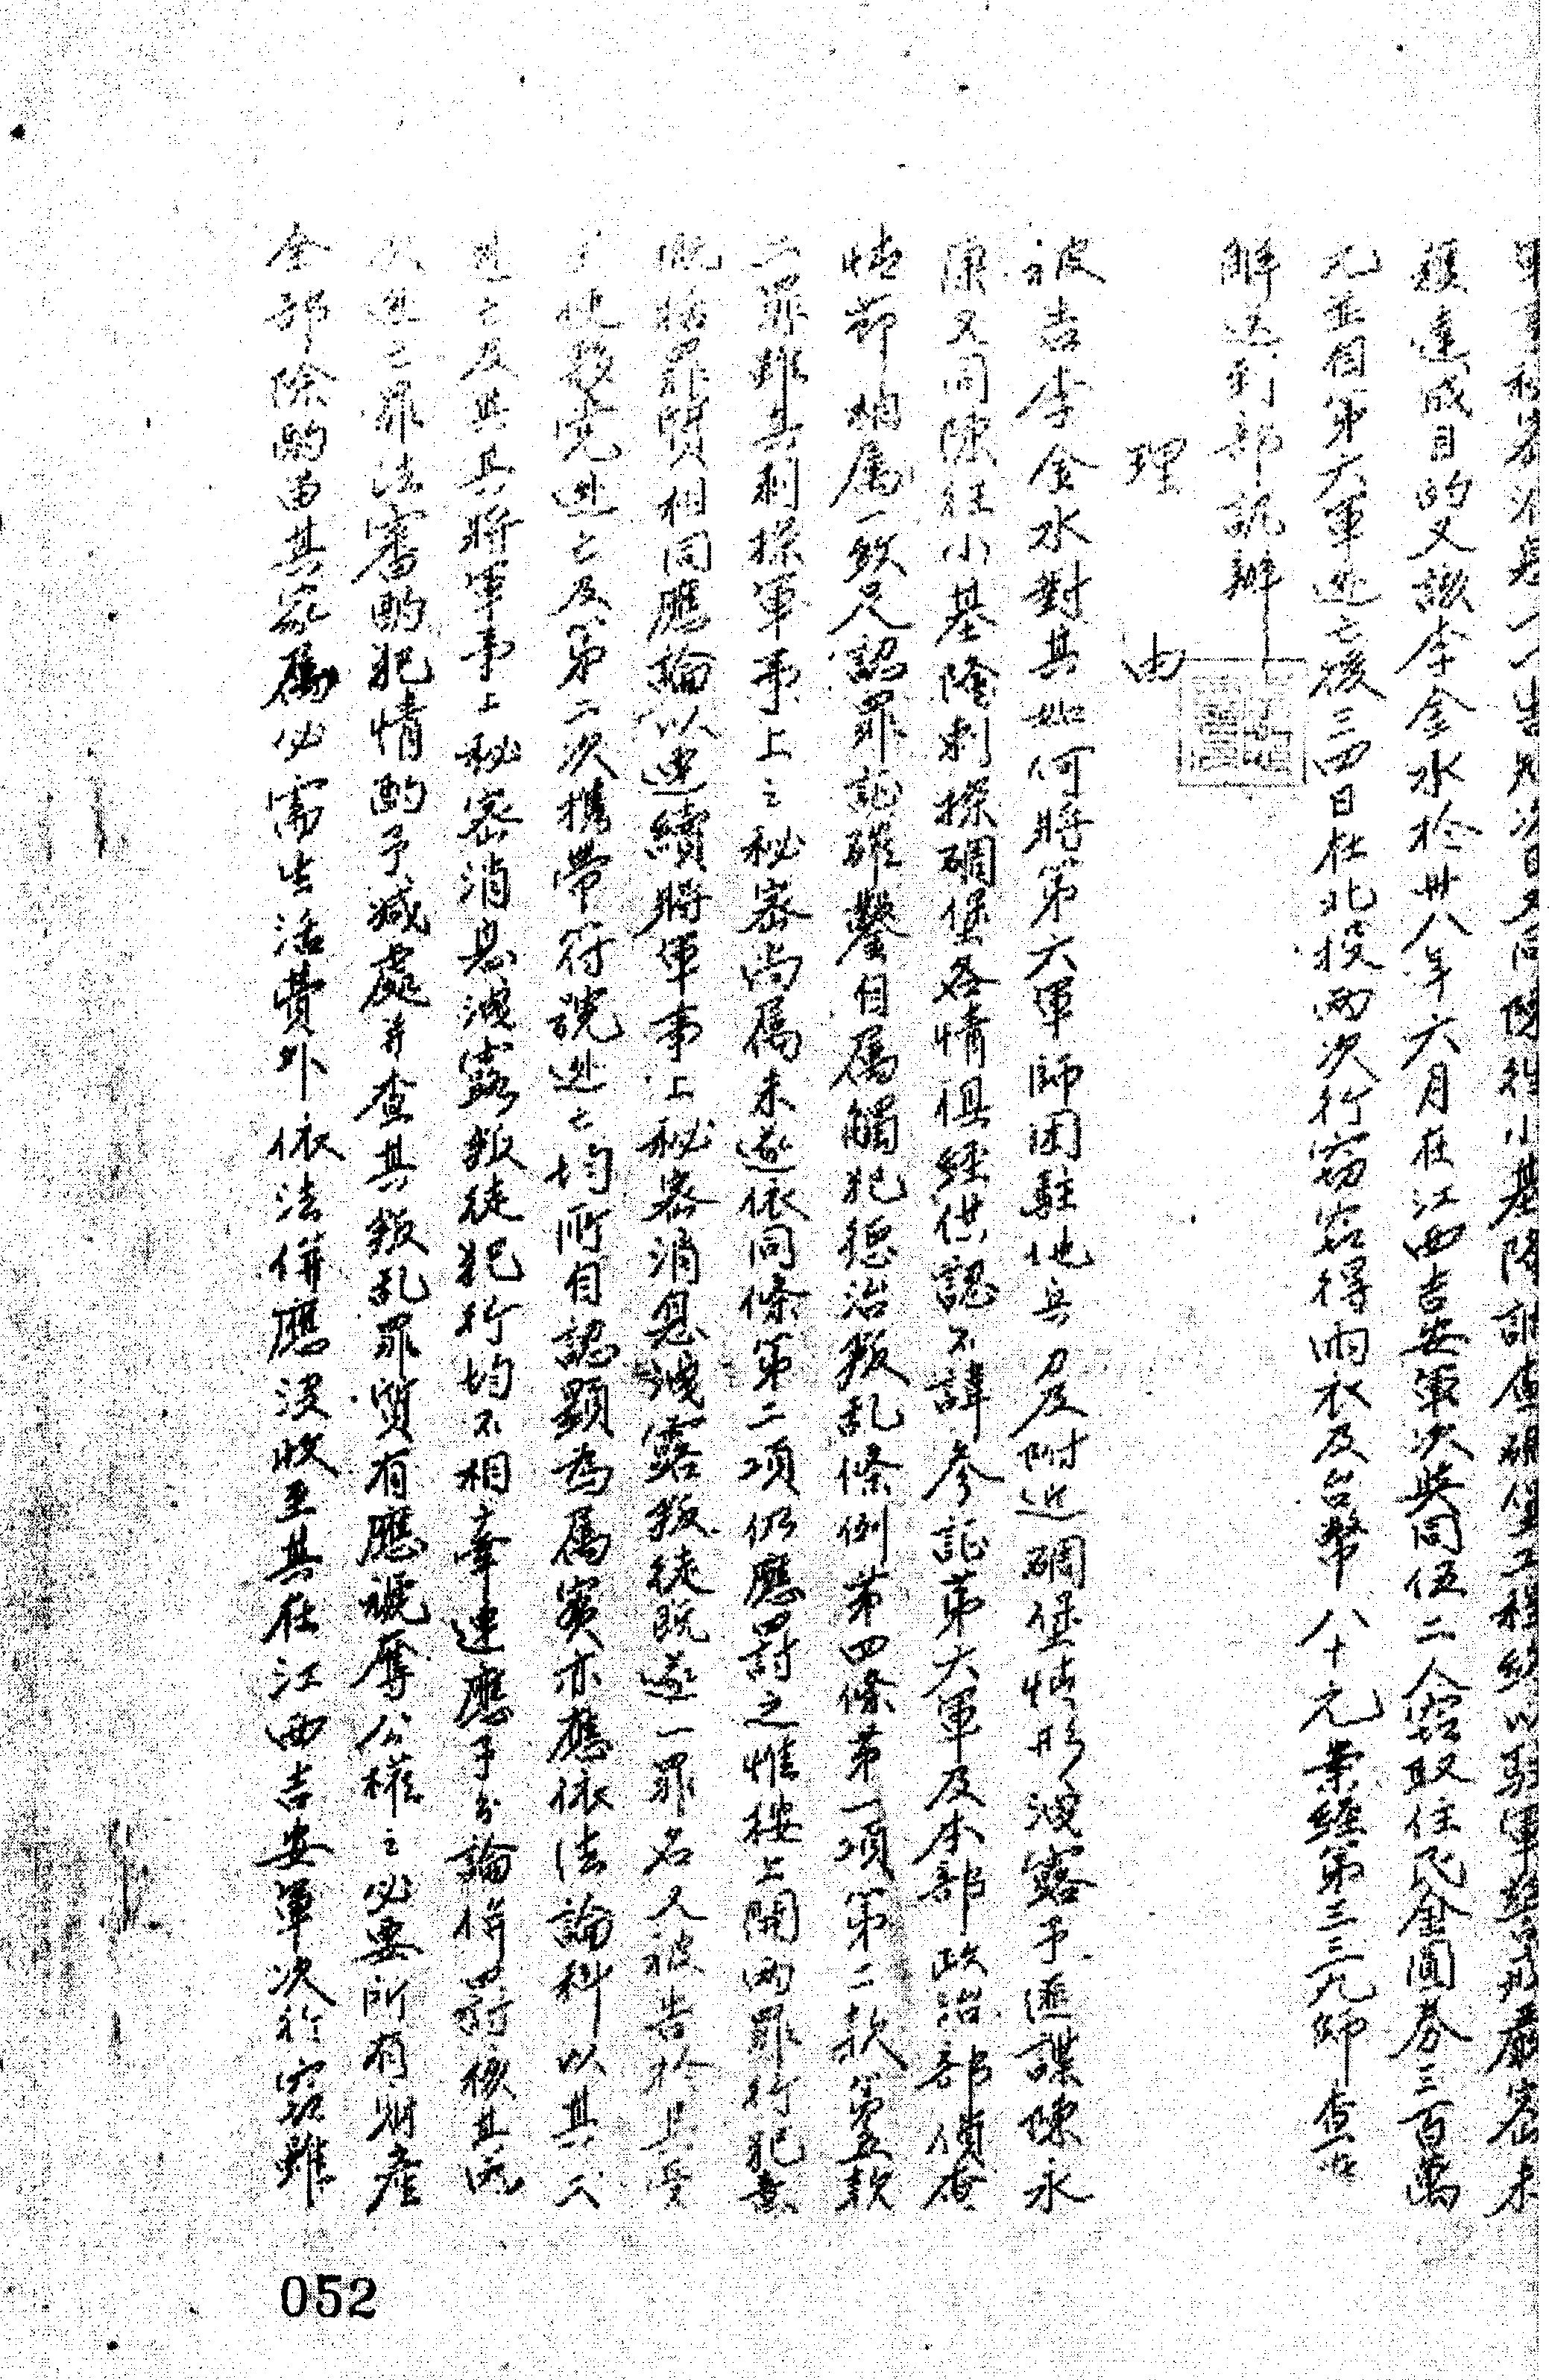 軍事秘密消息一一告知次日又同陳往小基隆調查碉堡工程終以駐軍警戒嚴密未
獲達成目的又該李金水於卅八年六月在江西吉安軍次與同伍二人竊取住民金圓券三百萬
元並自第六軍逃亡後三四日在北投兩次行竊竊得雨衣及台幣八十元案經第三三九師查古
解送到部訊辦
理由
被告李金水對其如何將第六軍師團駐地兵力及附近碉堡情形洩露予匪諜陳永
康又同陳往小基隆刺探碉堡各情俱經供認不諱參証第六軍及本部政治部偵查
情節相屬一致足認罪証確鑿自屬觸犯懲治叛乱條例第四條第一項第二款第五款
二罪雖其刺探軍事上之秘密尚屬未遂依同條第二項仍應罰之惟按上開兩罪行犯意
概括罪質相同應論以連續將軍事上秘密消息洩露叛徒既遂一罪名又被告於其受
了使役完逃亡及第二次攜帶符號逃亡均所自認顯為屬實亦應依法論科以其二次
逃亡及其其將軍事上秘密消息洩露叛徒犯行均不相牽連應予分論併罰後其所
次逃亡罪法審酌犯情酌予減處并查其叛乱罪質有應褫奪公權之必要所有財產
全部除酌留其家屬必需生活費外依法併應沒收至其在江西吉安軍次行竊雖
052